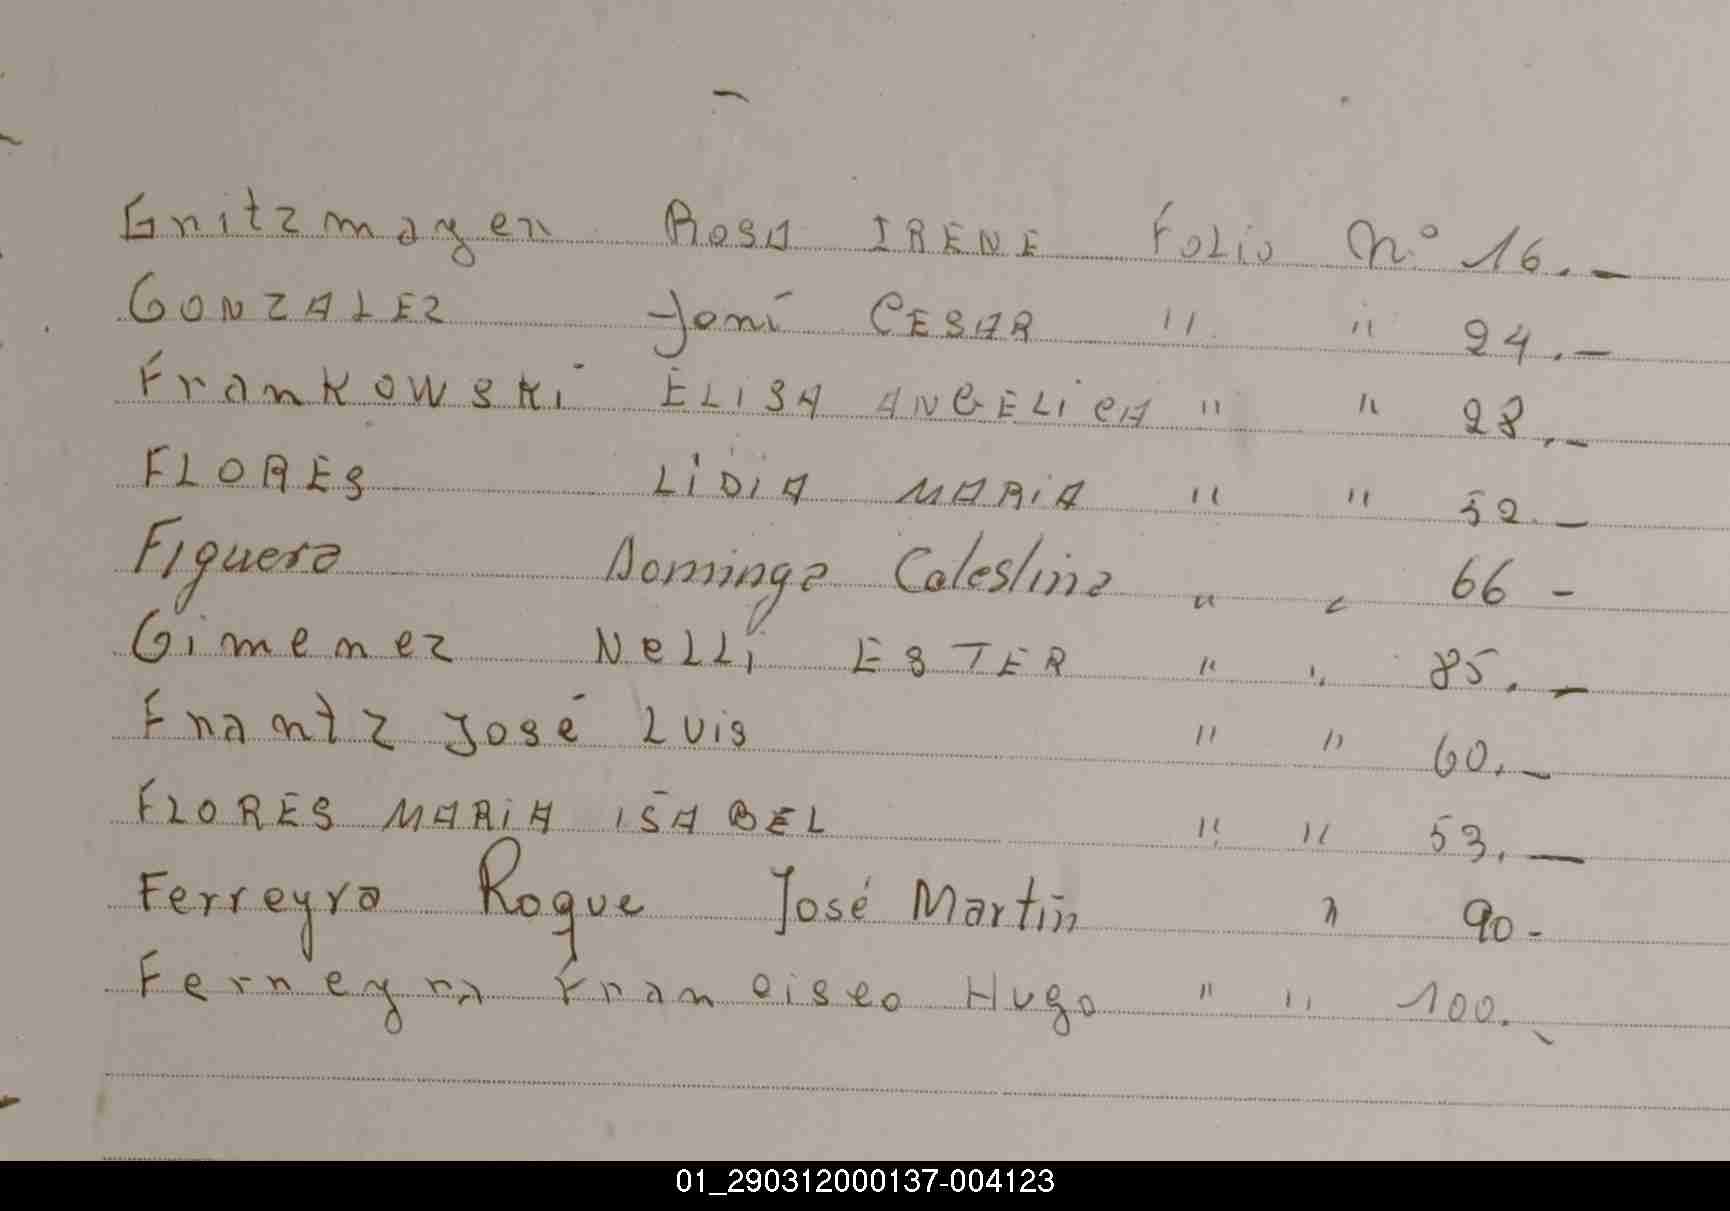 Gritzmayer ROSA IRENE FOLIO Nº 16.-
GONZALEZ José CESAR " " 24.-
FranKOWSKi ELISA ANGELiCA " " 28.-
FLORES LiDiA MARiA " " 52.-
Figuera Domingo Celestino " " 66-
Gimenez NELLi ESTER " " 85.-
Frantz José Luis " " 60.-
FLORES MARiA ISABEL " " 53.-
Ferreyra Roque José Martín " 90-
Ferreyra Francisco Hugo " " 100.-
01_290312000137-004123